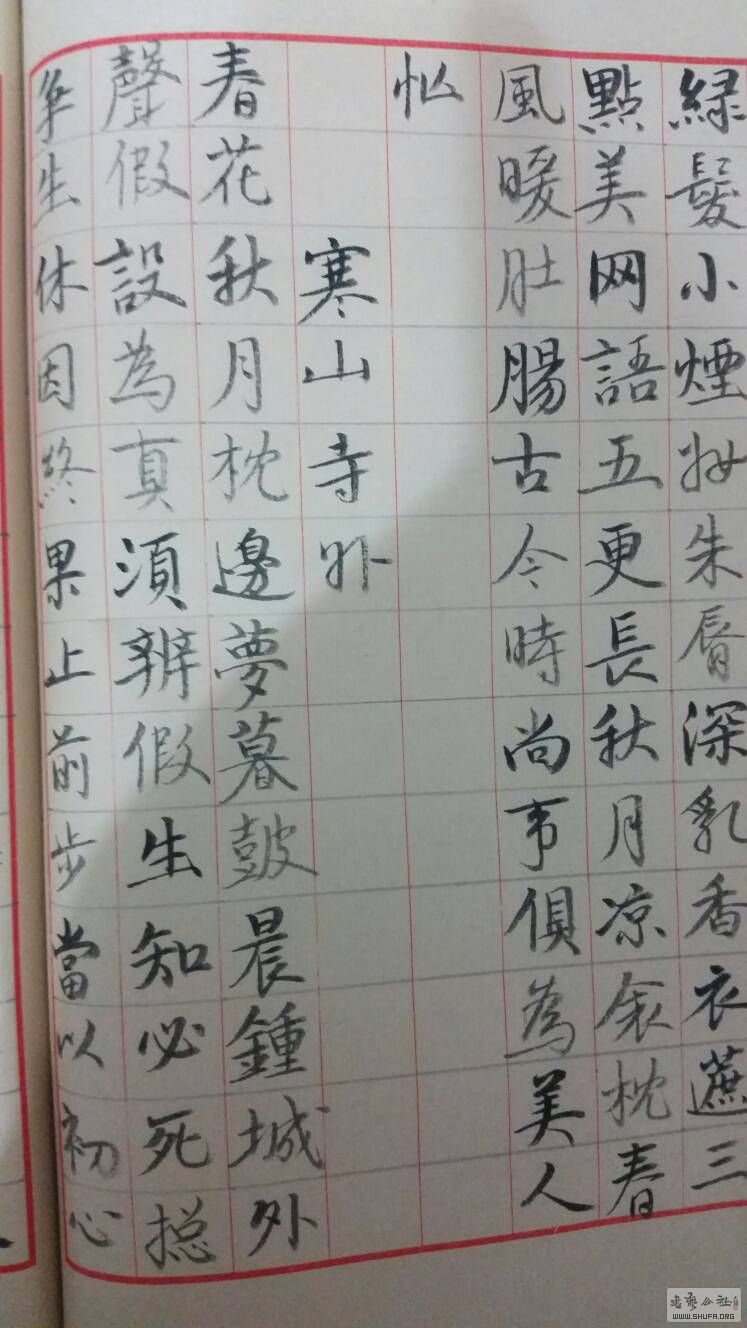 綠鬢小煙妝朱脣深乳香衣遮三
點美网語五更長秋月凉衾枕春
風暖肚腸古今時尚事俱為美人
忙
寒山寺外
春花秋月枕邊夢暮鼓晨鍾城外
聲假設為真須辨假生知必死摠
年生休因終果止前步當以初心
WWW.SHUFA.ORG